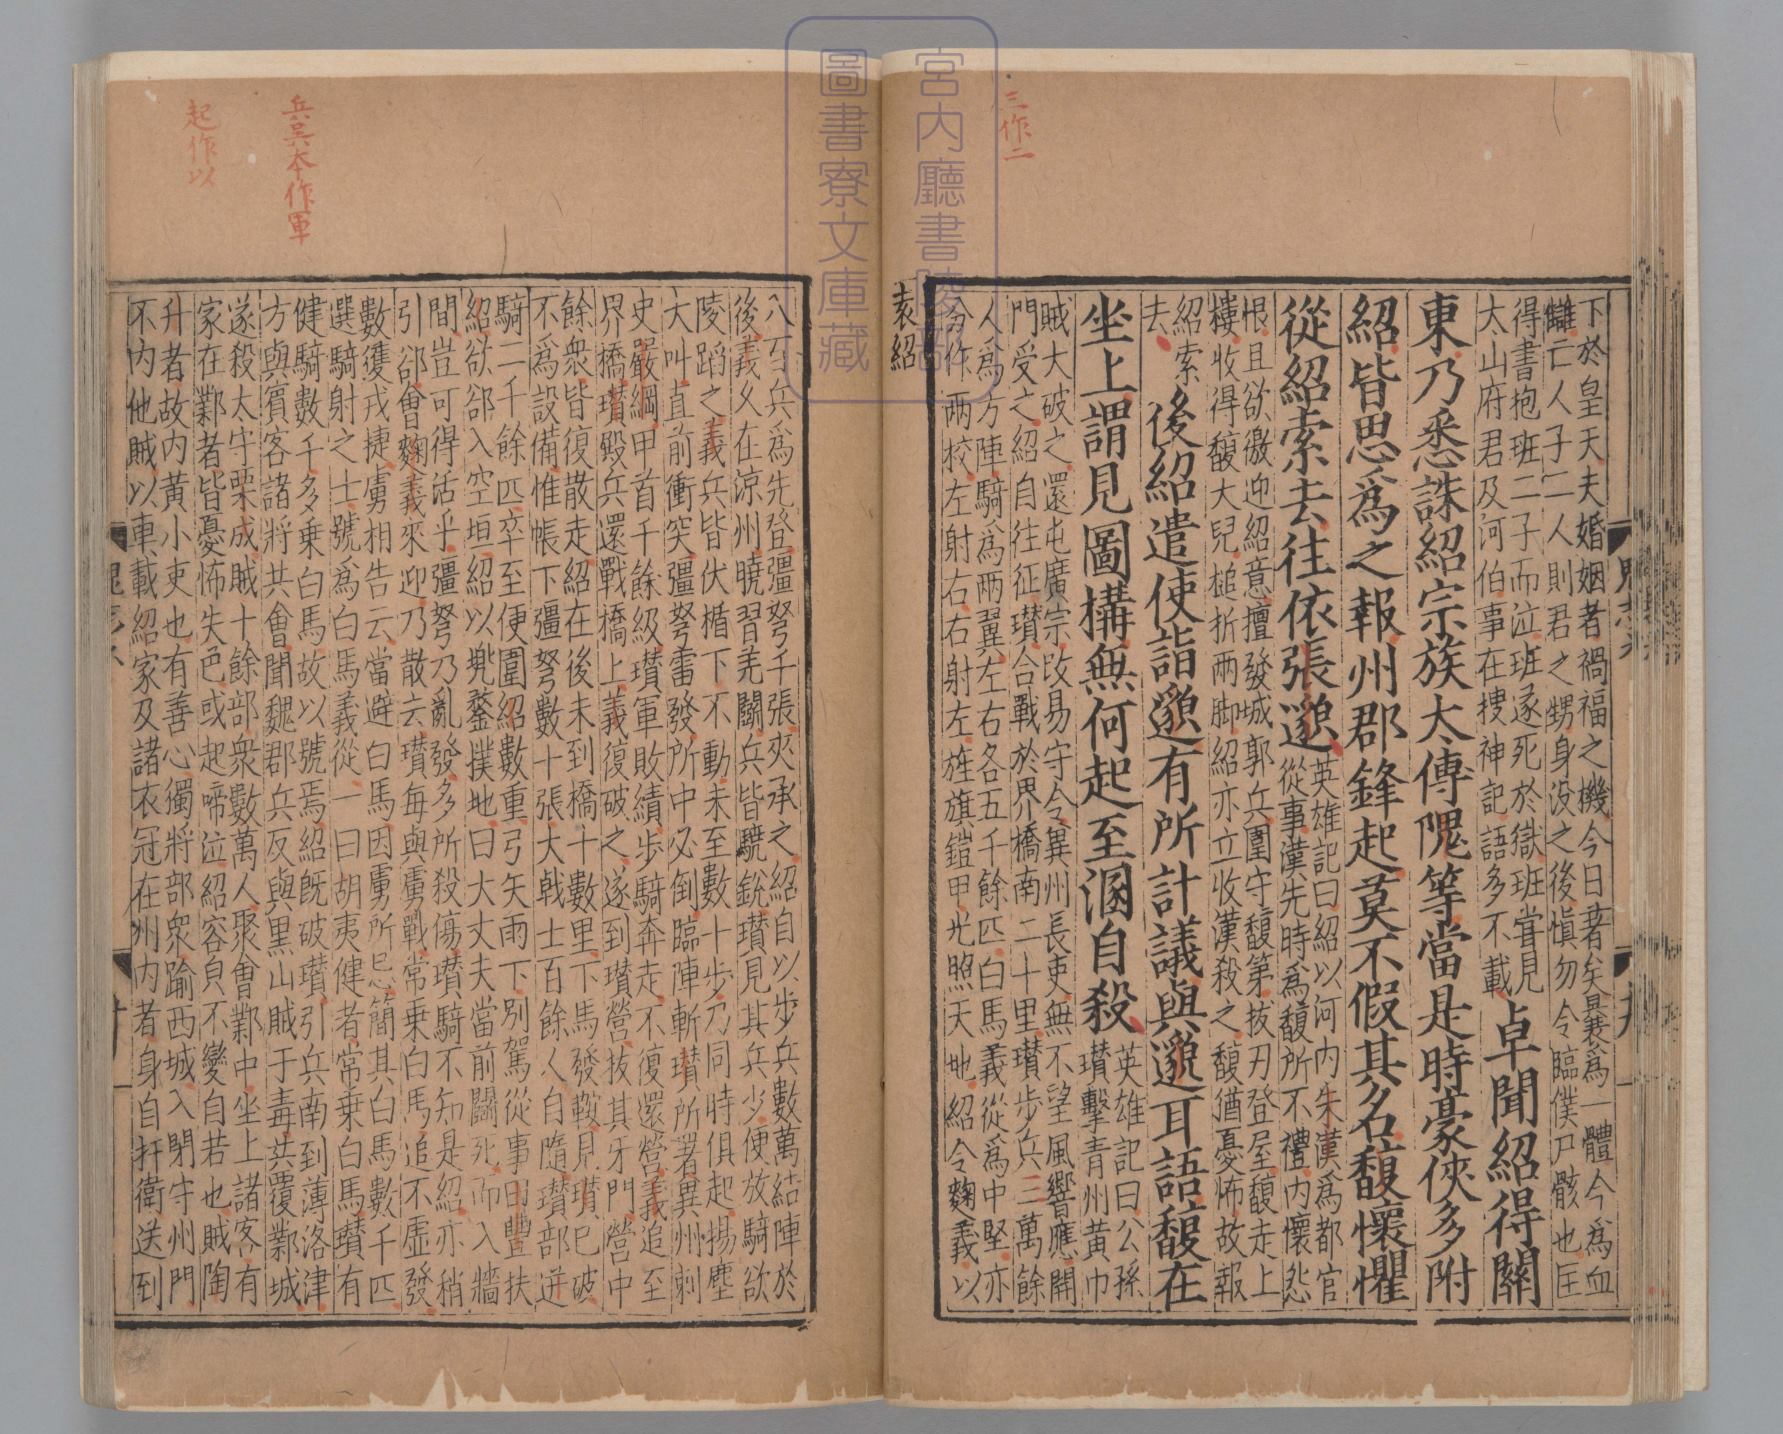 三作二
下於皇天夫婚姻者禍福之機今日著矣曩爲一體今爲血
讎亡人子二人則君之甥身没之後愼勿令臨僕尸骸也匡
得書抱班二子而泣班遂死於獄班嘗見
太山府君及河伯事在搜神記語多不載
卓聞紹得關
東乃悉誅紹宗族太傅隗等當是時豪俠多附
紹皆思爲之報州郡鋒起莫不假其名馥懷懼
從紹索去往依張邈
英雄記曰紹以河内朱漢爲都官
從事漢先時爲馥所不禮内懷忿
恨且欲徼迎紹意擅發城郭兵圍守馥第拔刃登屋馥走上
樓收得馥大兒槌折兩脚紹亦立收漢殺之馥猶憂怖故報
紹索
去
後紹遣使詣邈有所計議與邈耳語馥在
坐上謂見圖構無何起至溷自殺
英雄記曰公孫
瓚擊青州黄巾
賊大破之還屯廣宗改易守令冀州長吏無不望風響應開
門受之紹自往征瓚合戰於界橋南二十里瓚步兵三萬餘
人爲方陣騎爲兩翼左右各五千餘匹白馬義從爲中堅亦
分作兩校左射右右射左旌旗鎧甲光照天地紹令麴義以
袁紹
宮内廳書陵部
圖書寮文庫藏
兵吴本作軍
起作以
八百兵爲先登彊弩千張夾承之紹自以步兵數萬結陣於
後義久在涼州曉習羌鬭兵皆驍銳瓚見其兵少便放騎欲
陵蹈之義兵皆伏楯下不動未至數十步乃同時俱起揚塵
大叫直前衝突彊弩雷發所中必倒臨陣斬瓚所署冀州刺
史嚴綱甲首千餘級瓚軍敗績步騎奔走不復還營義追至
界橋瓚毀兵還戰橋上義復破之遂到瓚營拔其牙門營中
餘衆皆復散走紹在後未到橋十數里下馬發鞍見瓚已破
不爲設備惟帳下彊弩數十張大戟士百餘人自隨瓚部迸
騎二千餘匹卒至便圍紹數重弓矢雨下別駕從事田豐扶
紹欲郤入空垣紹以兠鍪撲地曰大丈夫當前鬭死而入牆
間豈可得活乎彊弩乃亂發多所殺傷瓚騎不知是紹亦稍
引郤會麴義來迎乃散去瓚每與虜戰常乗白馬追不虛發
數獲戎捷虜相告云當避白馬因虜所忌簡其白馬數千匹
選騎射之士號爲白馬義從一曰胡夷健者常乗白馬瓚有
健騎數千多乗白馬故以號焉紹旣破瓚引兵南到薄洛津
方與賓客諸將共會聞魏郡兵反與黑山賊于毒共覆鄴城
遂殺太守栗成賊十餘部衆數萬人聚會鄴中坐上諸客有
家在鄴者皆憂怖失色或起啼泣紹容皃不變自若也賊陶
升者故内黄小吏也有善心獨將部衆踰西城入閉守州門
不内他賊以車載紹家及諸衣冠在州内者身自扞衛送到